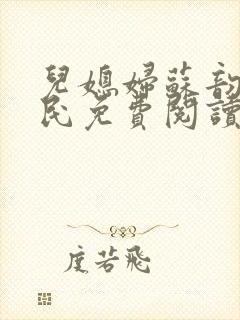 兒媳婦蘇韵
民免費閱讀
度若飛